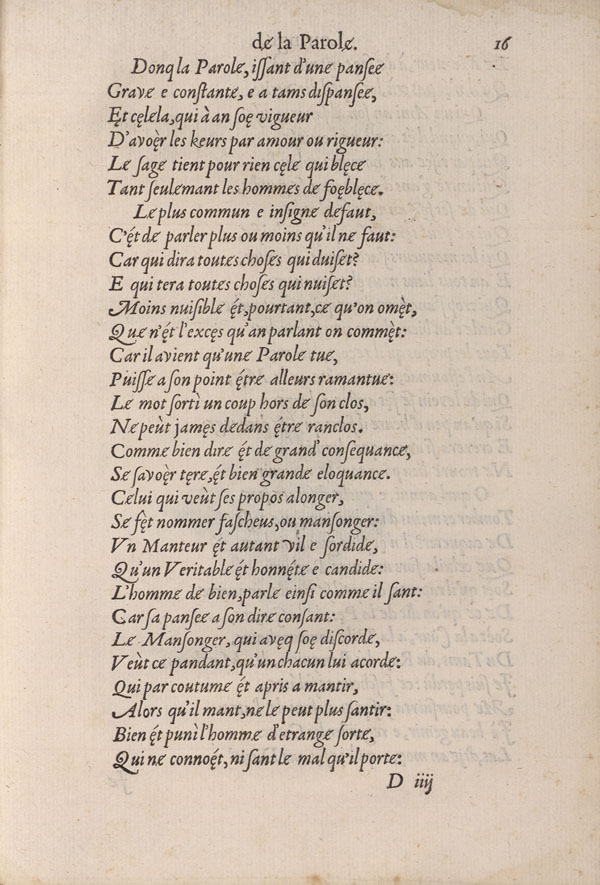 de la Parolę. 16
Donq la Parolę, iſſant d'unę panſeę
Gravę e conſtantę, e a tams diſpanſeę,
Ęt cęlęla, qui à an ſoę vigueur
D'avoęr les keurs par amour ou rigueur:
Lę ſagę tient pour rien cęlę qui blęcę
Tant ſeulęmant les hommęs dę foęblęcę.
Lę plus commun e inſignę defaut,
C'ę́t dę parler plus ou moins qu'il nę faut:
Car qui dira toutęs choſęs qui duiſęt?
E qui tera toutęs choſęs qui nuiſęt?
Moins nuiſiblę ę́t, pourtant, cę qu'on omę̀t,
Quę n'ę́t l'excęs qu'an parlant on commę̀t:
Car il avient qu'unę Parolę tuę,
Puiſſę a ſon point ę́trę alleurs ramantuę:
Lę mot ſorti un coup hors dę ſon clos,
Nę peùt jamęs dędans ę́trę ranclos.
Commę bien dirę ę́t dę grand' conſequancę,
Sę ſavoęr tęrę, ę́t bien grandę eloquancę.
Cęlui qui veùt ſes propos alonger,
Sę fęt nommer faſcheus, ou manſonger:
Vn Manteur ę́t autant vil e ſordidę,
Qu'un Veritablę ę́t honnę́tę e candidę:
L'hommę dę bien, parlę einſi commę il ſant:
Car ſa panſeę a ſon dirę conſant:
Lę Manſonger, qui avęq ſoę diſcordę,
Veùt cę pandant, qu'un chacun lui acordę:
Qui par coutumę ę́t apris a mantir,
Alors qu'il mant, nę lę peut plus ſantir:
Bien ę́t punì l'hommę d'etrangę ſortę,
Qui nę connoę́t, ni ſant lę mal qu'il portę:
D iiij